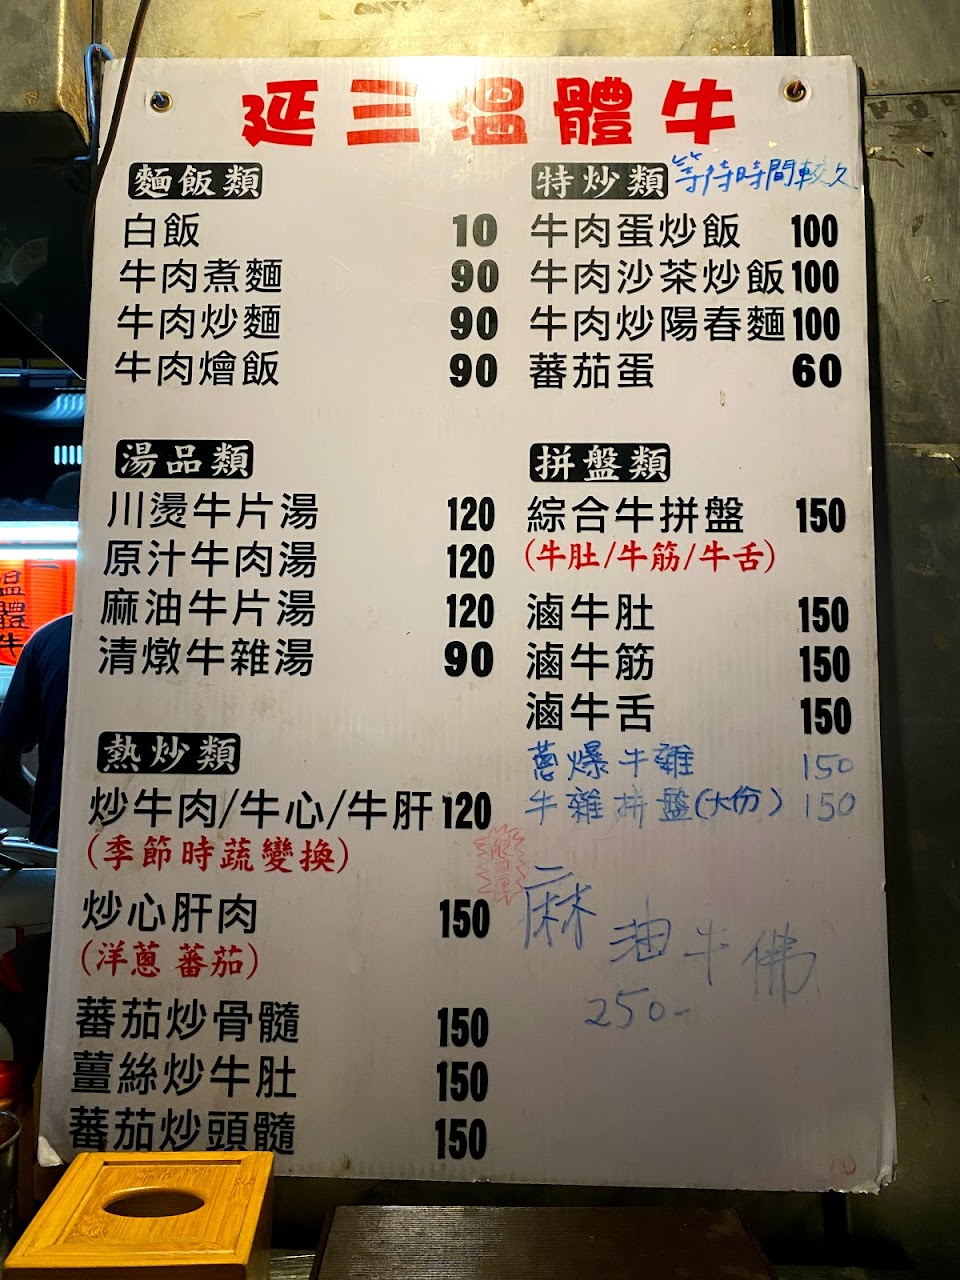 延三溫體牛
麵飯類
白飯 10
牛肉煮麵 90
牛肉炒麵 90
牛肉燴飯 90
特炒類 等待時間較久
牛肉蛋炒飯 100
牛肉沙茶炒飯 100
牛肉炒陽春麵 100
蕃茄蛋 60
湯品類
川燙牛片湯 120
原汁牛肉湯 120
麻油牛片湯 120
清燉牛雜湯 90
拼盤類
綜合牛拼盤 150
(牛肚/牛筋/牛舌)
滷牛肚 150
滷牛筋 150
滷牛舌 150
蔥爆牛雜 150
牛雜拼盤(大份) 150
麻油牛佛
250-
熱炒類
炒牛肉/牛心/牛肝 120
(季節時蔬變換)
炒心肝肉 150
(洋蔥 蕃茄)
蕃茄炒骨髓 150
薑絲炒牛肚 150
蕃茄炒頭髓 150
溫體牛